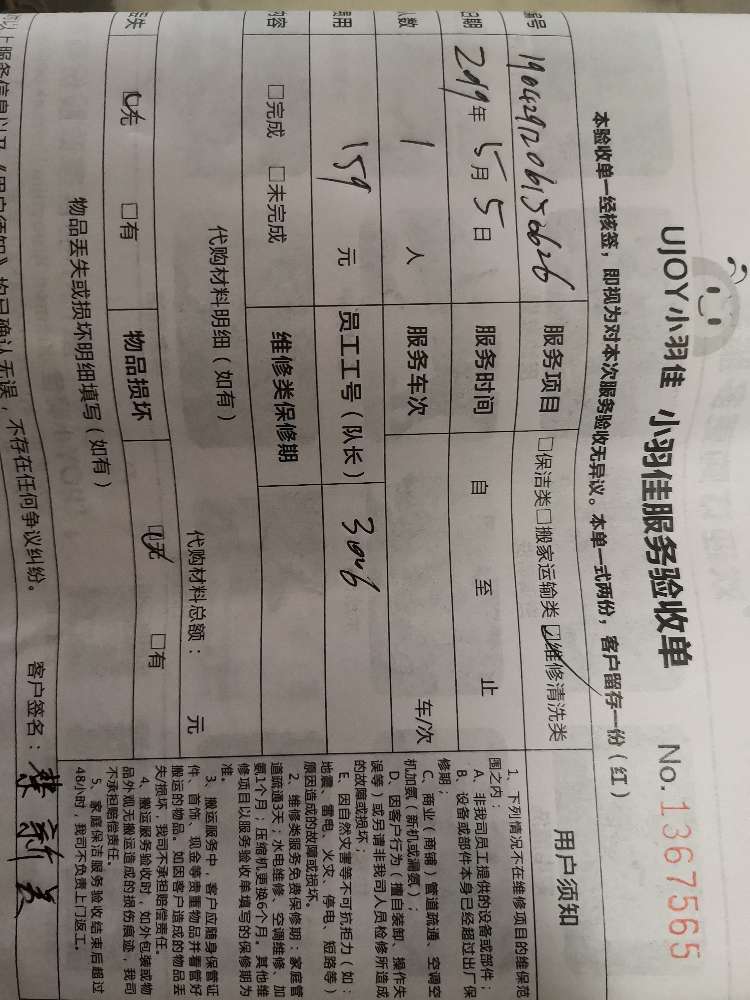 UJOY小羽佳 小羽佳服务验收单 No.1367565
本验收单一经核签，即视为对本次服务验收无异议。本单一式两份，客户留存一份（红）
编号 1904291206150626 服务项目 □保洁类□搬家运输类☑维修清洗类
日期 2019年5月5日 服务时间 自 至 止
人数 1 人 服务车次 车/次
费用 159 元 员工工号（队长） 3006
内容 □完成 □未完成 维修类保修期
代购材料明细（如有） 代购材料总额： 元
丢失 ☑无 □有 物品损坏 ☑无 □有
物品丢失或损坏明细填写（如有）
以上服务信息以及《用户须知》均已确认无误，不存在任何争议纠纷。 客户签名：
用户须知
1、下列情况不在维修项目的维保范
围之内：
A、非我司员工提供的设备或部件；
B、设备或部件本身已经超过出厂保
修期；
C、商业（商铺）管道疏通、空调空
机加氨（新机或漏氨）；
D、因客户行为（擅自装卸、操作失
误等）或另请非我司人员检修所造成
的故障或损坏；
E、因自然灾害等不可抗拒力（如：
地震、雷电、火灾、停电、短路等）
原因造成的故障或损坏。
2、维修类服务免费保修期：家庭管
道疏通3天；水电维修、空调维修、加
氨1个月；压缩机更换6个月。其他维
修项目以服务验收单填写的保修期为
准。
3、搬运服务中，客户应随身保管证
件、首饰、现金等贵重物品并看管好
搬运的物品。如因客户造成的物品丢
失/损坏，我司不承担赔偿责任。
4、搬运服务验收时，如外包装或物
品外观无搬运造成的损伤痕迹，我司
不承担赔偿责任。
5、家庭保洁服务验收结束后超过
48小时，我司不负责上门返工。